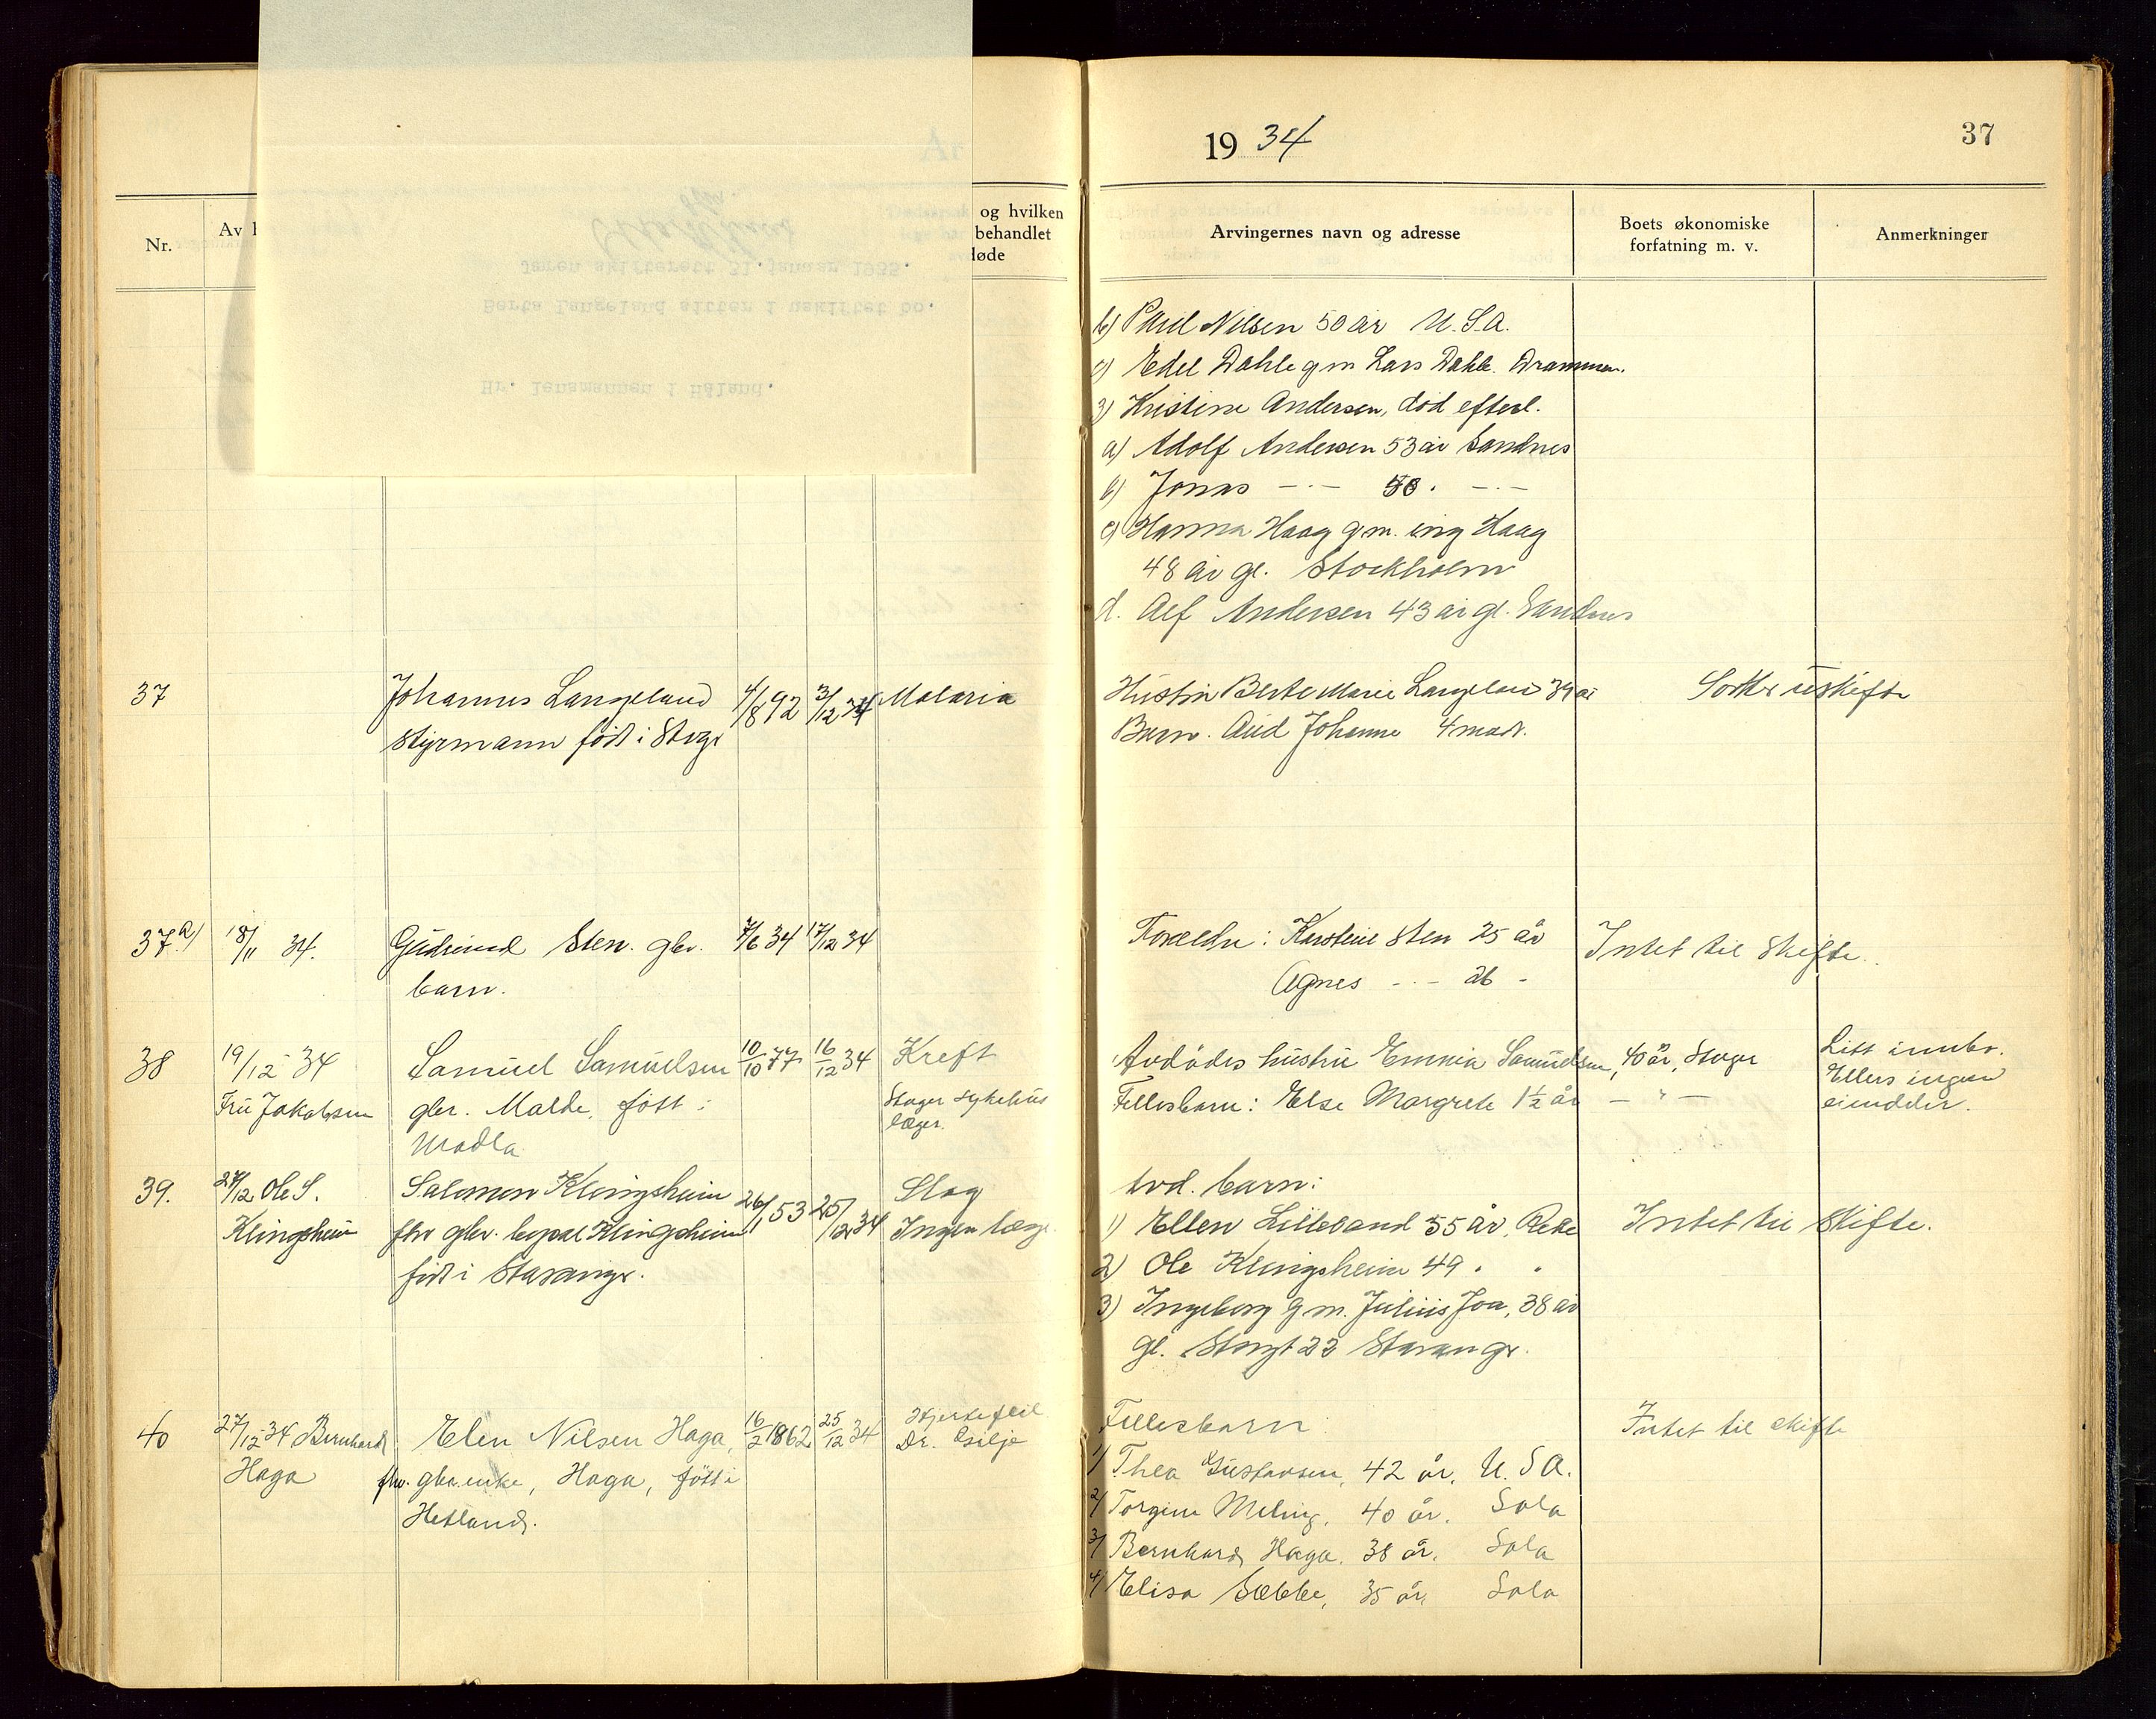 19 34
37
Nr.
Av
og hvilken
behandlet
døde
Arvingernes navn og adresse
Boets økonomiske
forfatning m. v.
Anmerkninger
Jæren skifterett 31. januar 1935.
Berta Langeland sitter i uskiftet bo.
Hr. lensmannen i Håland.
b) Paul Nilsen 50 år U.S.A.
c) Edel Dahle gm Lars Dahle. Drammen.
3) Kristine Andersen, død efterl.
a) Adolf Andersen 53 år Sandnes
b) Jonas —·— 50. —·—
c) Hanna Haag gm. ing Haag
48 år gl. Stockholm
d. Alf Andersen 43 år gl. Sandnes
37
Johannes Langeland
Styrmann født i Stvgr
4/8 92
3/12 34
Malaria
Hustru Berte Marie Langeland 39 år
Barn. Aud Johanne 4 mdr.
uskifte
37 a)
18/11 34.
Gudrund Sten. gbr.
barn.
7/6 34
17/12 34
Foreldre: Karsteine Sten 25 år
Agnes —·— 26 -
Intet til Skifte.
38
19/12 34
Fru Jakobsen
Samuel Samuelsen
gbr. Malde, født i
Madla
10/10 77
16/12 34
Kreft
Stvgr sykehus
læger.
Avdødes hustru Emma Samuelsen, 40 år, Stvgr
Fellesbarn: Else Margrete 1½ år — " —
Litt innbo.
Ellers ingen
eiendeler.
39.
27/12 Ole S.
Klingsheim
Salomon Klingsheim
fhv gbr. bopæl Klingsheim
født i Stavanger.
26/1 53
25/12 34
Slag
Ingen læge
Avd. barn:
1) Ellen Lilleland 55 år, Rege
2) Ole Klingsheim 49 " "
3) Ingeborg gm. Julius Joa, 38 år
gl. Storgt 22 Stavanger.
Intet til Skifte.
40
27/12 34 Bernhard
Haga
Elen Nilsen Haga,
fhv. gbr.enke, Haga, født i
Hetland.
16/2 1862
25/12 34
Hjertefeil
Dr. Gilje
Fellesbarn:
1/ Thea Gustavsen, 42 år, U.S.A.
2/ Torgine Meling, 40 år. Sola
3/ Bernhard Haga, 38 år. Sola
4/ Elisa Sæbbe, 35 år, Sola
Intet til skifte